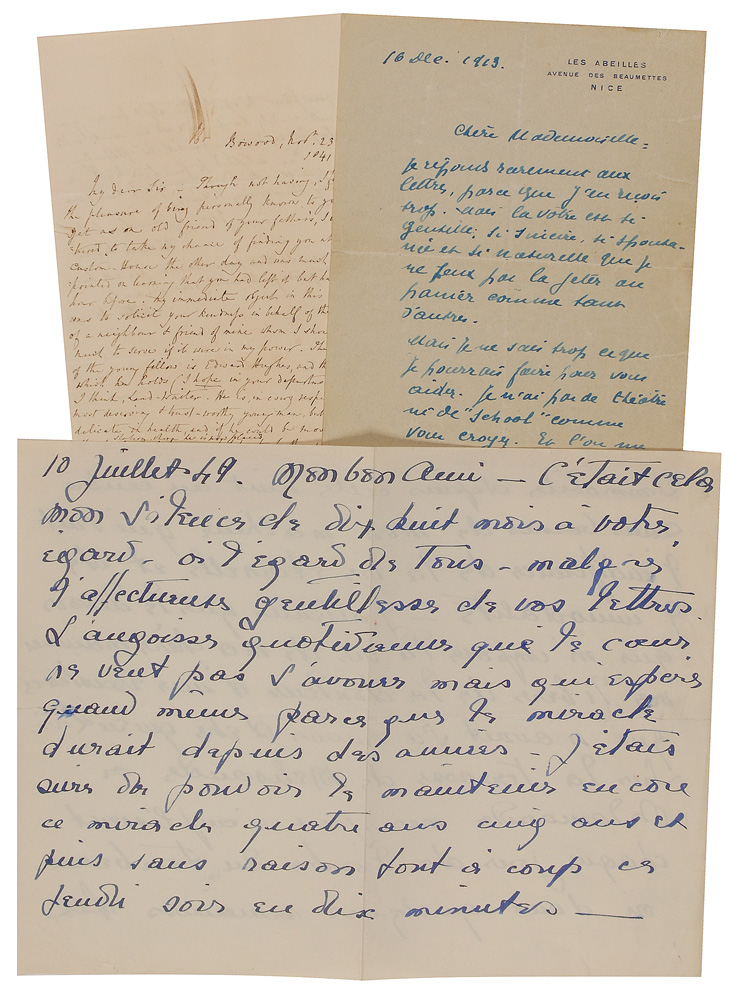 Bowood, Nov. 23
1841
My dear Sir – Though not having,
the pleasure of being personally known to
yet as an old friend of your father's,
to take my chance of finding you at
Custom House the other day and was much
on learning that you had left it but
hour before. My immediate object in this
was to solicit your kindness in behalf of the
of a neighbour & friend of mine whom I
much to serve if it were in my power. The
of the young fellow is Edward Hughes, and the
which he holds (I hope in your
I think, Land-Waiter. He is, in every
most deserving & trust-worthy young man, but
delicate in health, and if he could be
16 Dec. 1913.
LES ABEILLES
AVENUE DES BEAUMETTES
NICE
Chère Mademoiselle =
Je réponds rarement aux
lettres, parce que j'en reçois
trop. Mais la vôtre est si
gentille, si sincère, si sponta-
née et si naturelle que je
ne peux pas la jeter au
panier comme tant
d'autres.
Mais je ne sais trop ce que
je pourrais faire pour vous
aider. Je n'ai pas de théâtre
ni de "School" comme
vous croyez. Et l'on me
10 Juillet 49. Mon bon Ami – C'était cela
mon silence de dix huit mois à votre
égard – à l'égard de Tous – malgré
l'affectueuse gentillesse de vos lettres.
L'angoisse quotidienne que le cœur
ne veut pas s'avouer mais qui espère
quand même parce que le miracle
durait depuis des années – J'étais
sûre de pouvoir le maintenir encore
ce miracle quatre ans cinq ans et
puis sans raison tout à coup ce
Jeudi soir en dix minutes —